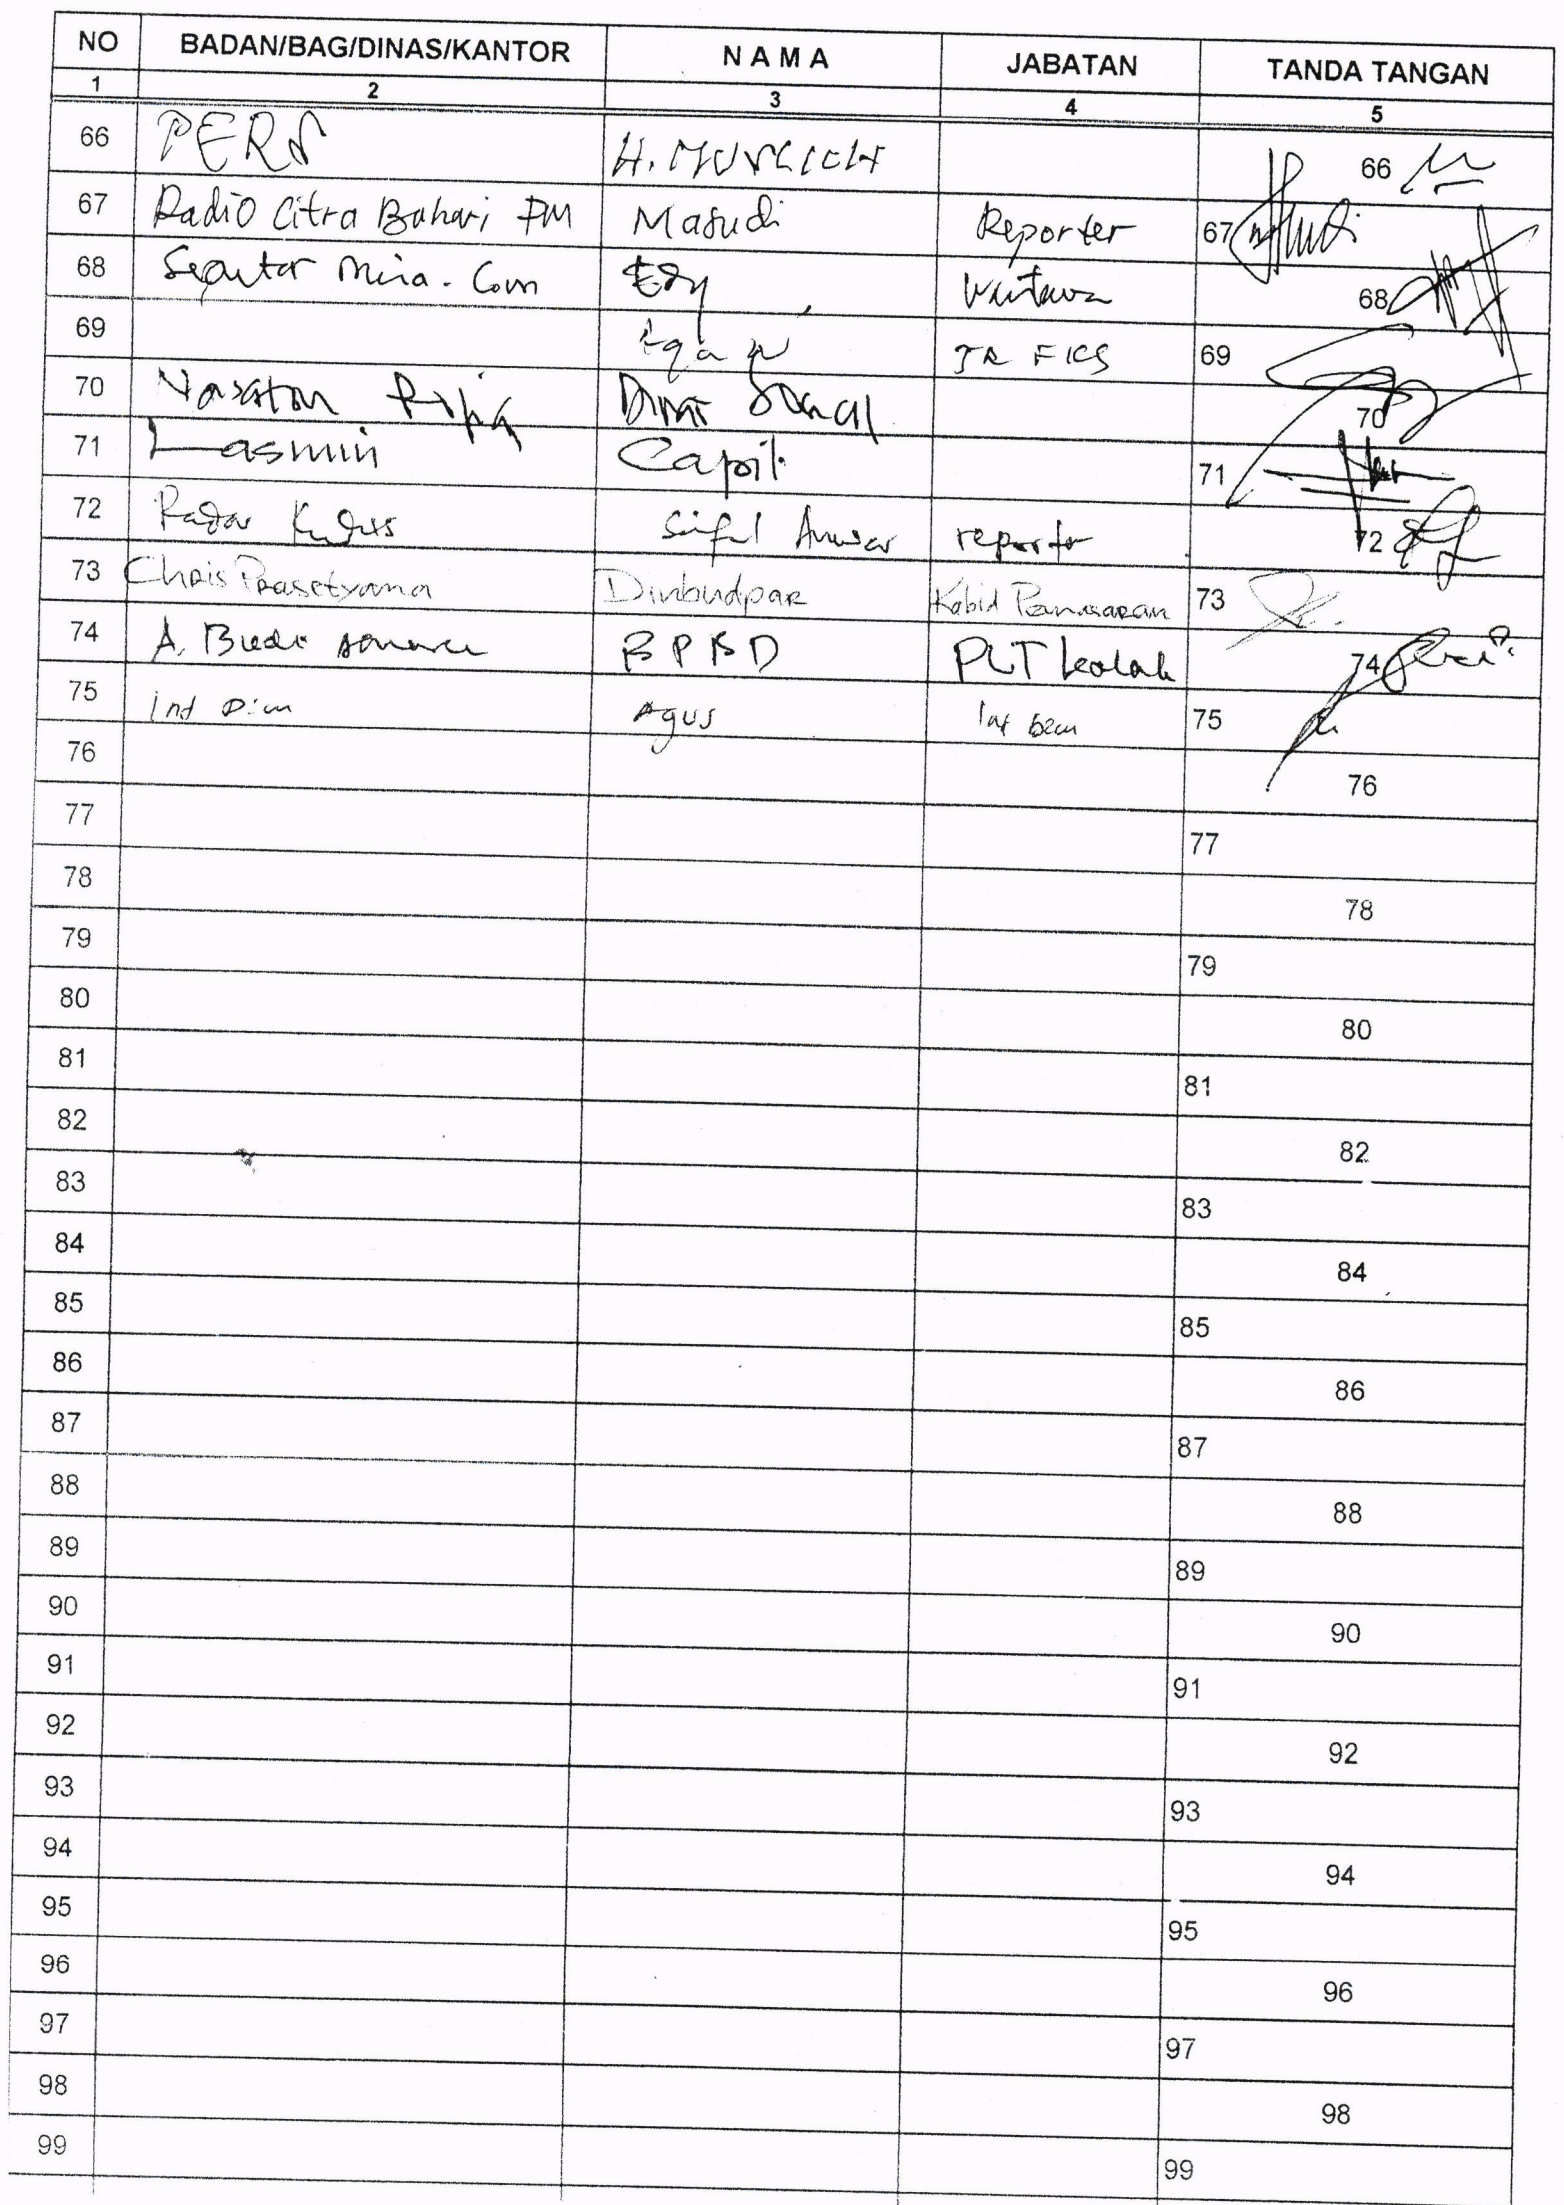 NO BADAN/BAG/DINAS/KANTOR N A M A JABATAN TANDA TANGAN
1 2 3 4 5
66 PERS H. MUSLICH 66
67 Radio Citra Bahari FM Masudi Reporter 67
68 Seputar Muria. Com Edy 68
69 69
70 70
71 Lasmin Capil 71
72 Radar Kudus Saiful Anwar reporter 72
73 Chris Prasetyama Dinbudpar Kabid Pemasaran 73
74 A. Budi BPBD PLT kalak 74
75 Agus 75
76 76
77 77
78 78
79 79
80 80
81 81
82 82
83 83
84 84
85 85
86 86
87 87
88 88
89 89
90 90
91 91
92 92
93 93
94 94
95 95
96 96
97 97
98 98
99 99